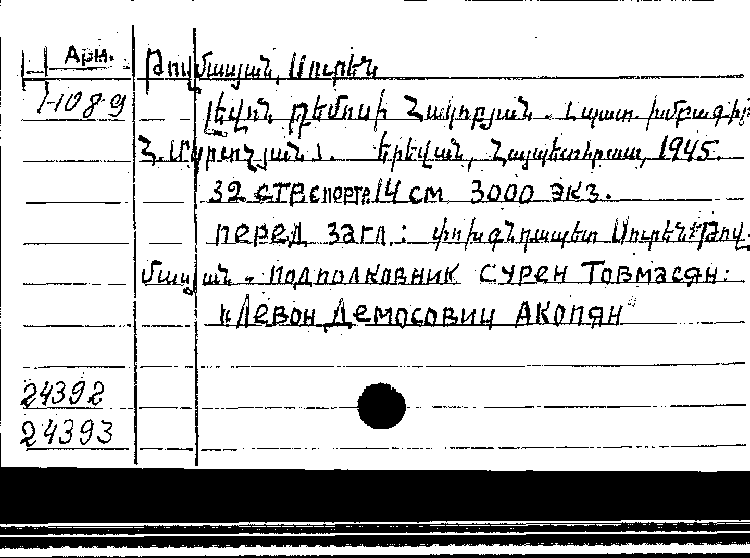 Арм.
Թովմասյան, Սուրեն
1-108-9
Լևոն Դեմոսի Հակոբյան. Հ պատ. խմբագիր
Հ. Մկրտչյան. Երևան, Հայպետհրատ, 1945.
32 стр с портр. 14 см 3000 экз.
перед загл: փոխգնդապետ Սուրեն Թով-
մասյան - подполковник Сурен Товмасян:
"Левон Демосович Акопян"
24392
24393